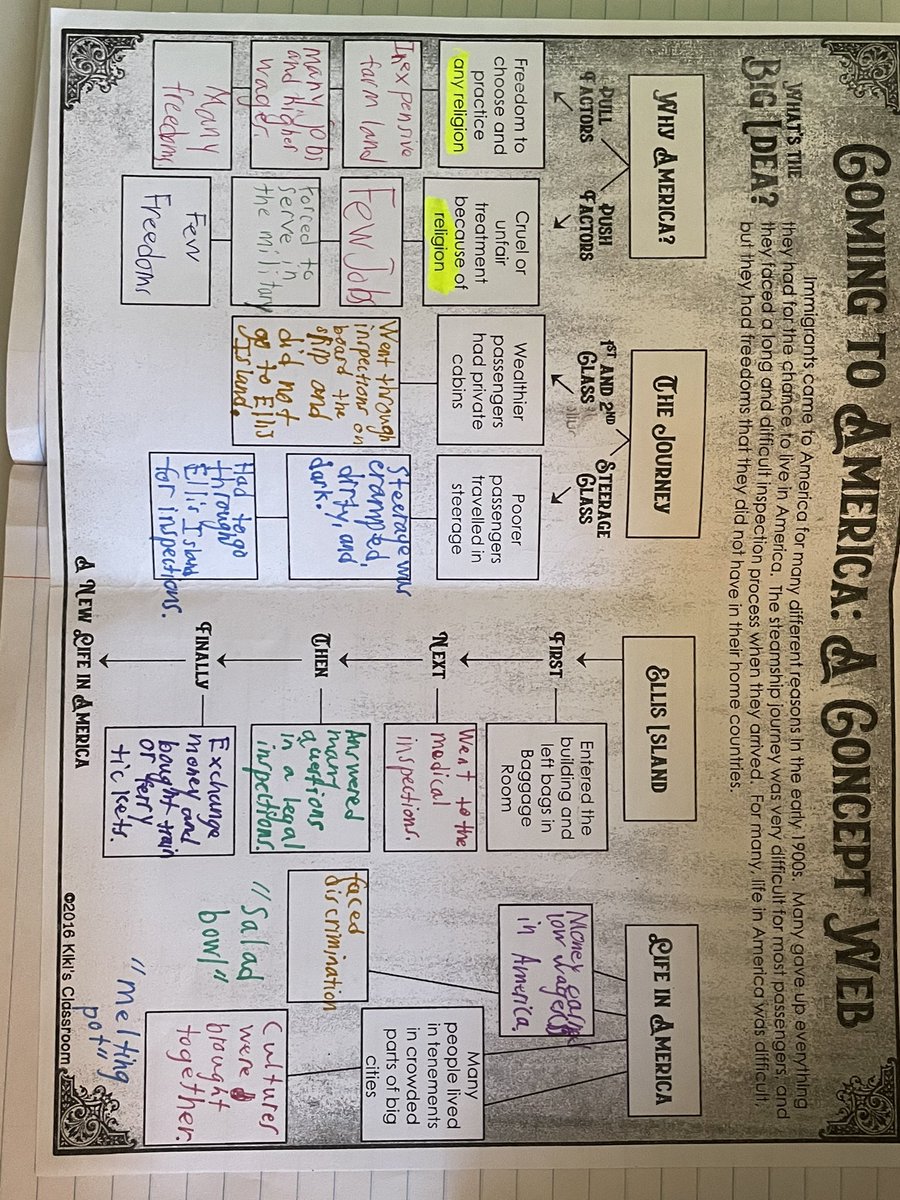 COMING TO AMERICA: A CONCEPT WEB
WHAT'S THE
BIG IDEA?
Immigrants came to America for many different reasons in the early 1900s. Many gave up everything
they had for the chance to live in America. The steamship journey was very difficult for most passengers and
they faced a long and difficult inspection process when they arrived. For many, life in America was difficult,
but they had freedoms that they did not have in their home countries.
WHY AMERICA?
PULL
FACTORS
PUSH
FACTORS
Freedom to
choose and
practice
any religion
Inexpensive
farm land
many jobs
and higher
wages.
Many
freedoms
Cruel or
unfair
treatment
because of
religion
Few Jobs
Forced to
serve in
the military
Few
Freedoms
THE JOURNEY
1ST AND 2ND
CLASS
STEERAGE
CLASS
Wealthier
passengers
had private
cabins
Went through
inspections on
board the
ship and
did not
go to Ellis
Island.
Poorer
passengers
travelled in
steerage
Steerage was
cramped,
dirty, and
dark.
Had to go
through
Ellis Island
for inspections.
ELLIS ISLAND
FIRST
Entered the
building and
left bags in
Baggage
Room
NEXT
Went to the
medical
inspections.
THEN
Answered
many
questions
in a legal
inspections.
FINALLY
Exchange
money and
bought train
or ferry
tickets.
A NEW LIFE IN AMERICA
LIFE IN AMERICA
Money
low wages
in America.
Many
people lived
in tenements
in crowded
parts of big
cities
faced
discrimination
Cultures
were
brought
together.
"Salad
bowl"
"melting
pot"
©2016 Kiki's Classroom